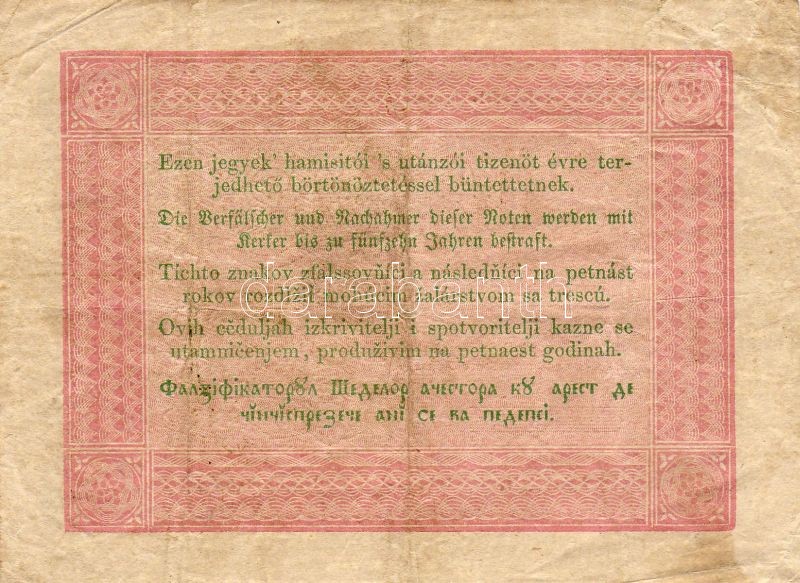 Ezen jegyek' hamisitói 's utánzói tizenöt évre ter-
jedhető börtönöztetéssel büntettetnek.
Die Verfälscher und Nachahmer dieser Noten werden mit
Kerker bis zu fünfzehn Jahren bestraft.
Tíchto znakov zfalssovňíci a následňíci na petnást
rokov rozďižiť mohúcim žalárstvom sa trescú.
darabanth
Ovih cěduljah izkrivitelji i spotvoritelji kazne se
utamničenjem, produživim na petnaest godinah.
Фалзіфікаторꙋл Шеделор ачестора кꙋ арест де
чінчіспрезече ані се ва педепсі.